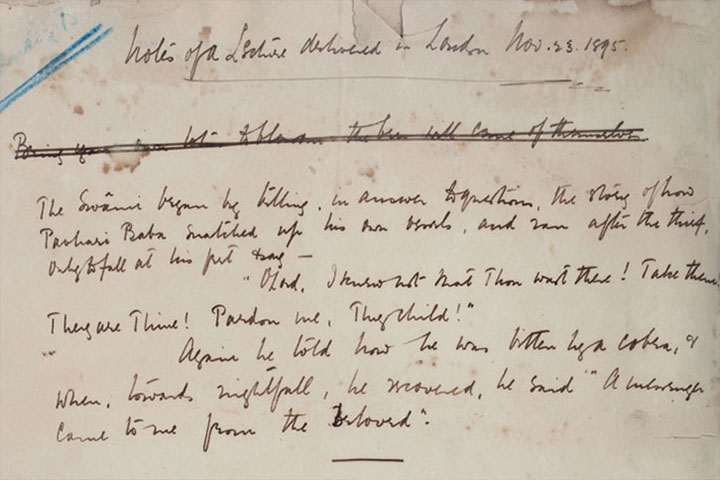 Notes of a Lecture delivered in London Nov. 23. 1895.
Bring your own lot to blossom the bees will come of themselves
The Swāmi began by telling, in answer to question, the story of how
Pavhari Baba snatched up his own vessels, and ran after the thief,
only to fall at his feet & say —
"O Lord, I knew not that Thou wast there! Take them!
They are Thine! Pardon me, Thy child!"
Again he told how he was bitten by a cobra, &
when, towards nightfall, he recovered, he said "A messenger
came to me from the Beloved".